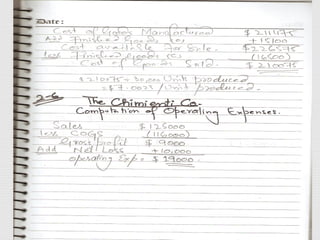 Date:
Cost of Goods Manufactured $ 211475
Add Finished Goods + 15100
Cost available for Sale. $ 226575
less Finished Goods (16500)
Cost of Goods Sold $ 210075
$ 210075 ÷ 30,000 Unit produced
= $ 7.0023 / Unit produced.
2-6 The Chimienti Co.
Computation of Operating Expenses.
Sales $ 125000
less COGS (116000)
Gross profit $ 9000
Add Net Loss + 10,000
operating Exp = $ 19000.